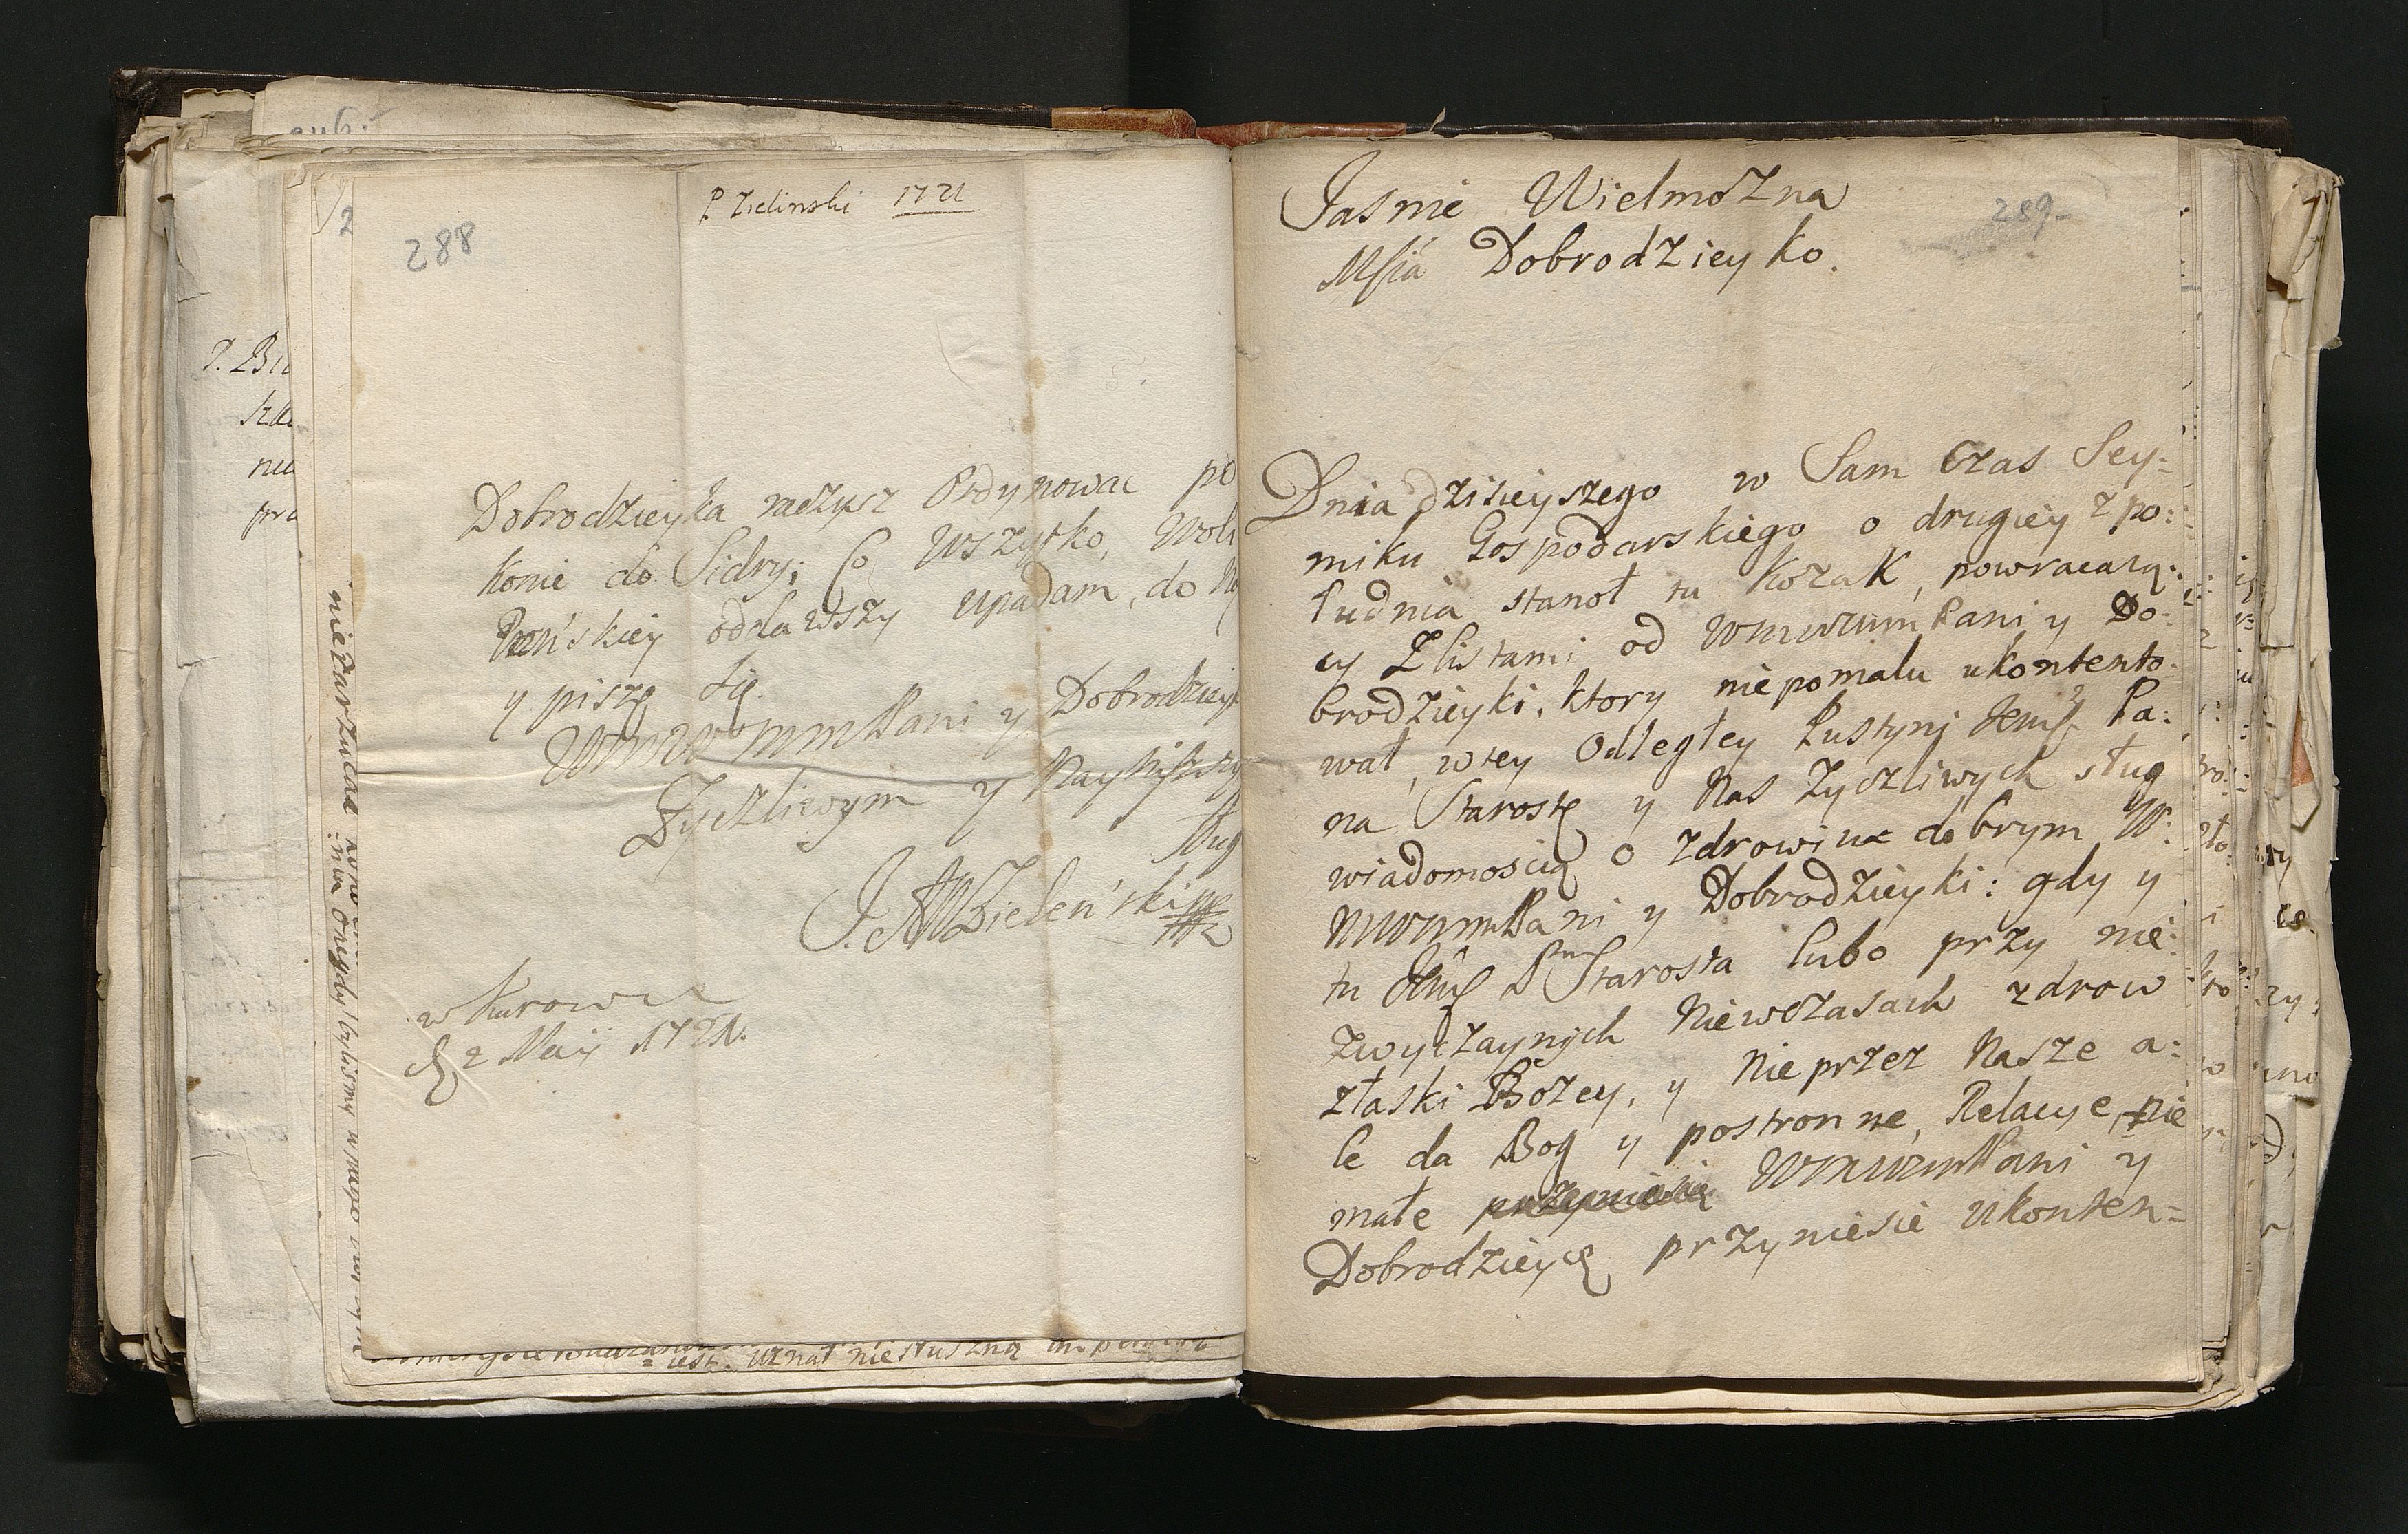 P. Zielinski 1721
288
Dobrodzieyka raczysz Ordynowac po
Konie do Sidry; Co Wszytko, Woli
Pańskiey oddawszy upadam, do
y piszę się.
WmWmmPani y Dobrodzieyk
Zyczliwym y Nayniszszy
sług
J. Zieleński
w Kurowie
2 Maij 1721.
289
Jasnie Wielmozna
Msia Dobrodzieyko.
Dnia dzisieyszego w Sam Czas Sey:
miku Gospodarskiego o drugiey z po:
łudnia stanoł tu Kozak, powracaią:
cy Z listami od WmwmmPani y Do:
brodzieyki, ktory niepomału ukontento:
wał, wtey Odległey Pustyni Jemsc Pa:
na Starostę y Nas Zyczliwych sług
wiadomoscią o zdrowiu dobrym W:
MwmmPani y Dobrodzieyki: gdy y
tu Jmsc Pan Starosta lubo przy nie:
zwyczaynych Niewczasach zdrow
złaski Bozey, y Nie przez Nasze a:
le da Bog y postronne, Relacye, nie
małe WmwmmPani y
Dobrodzieycę przyniesie Ukonten=
P. Bi
nie Oney
iest. Uznał niesłuszną